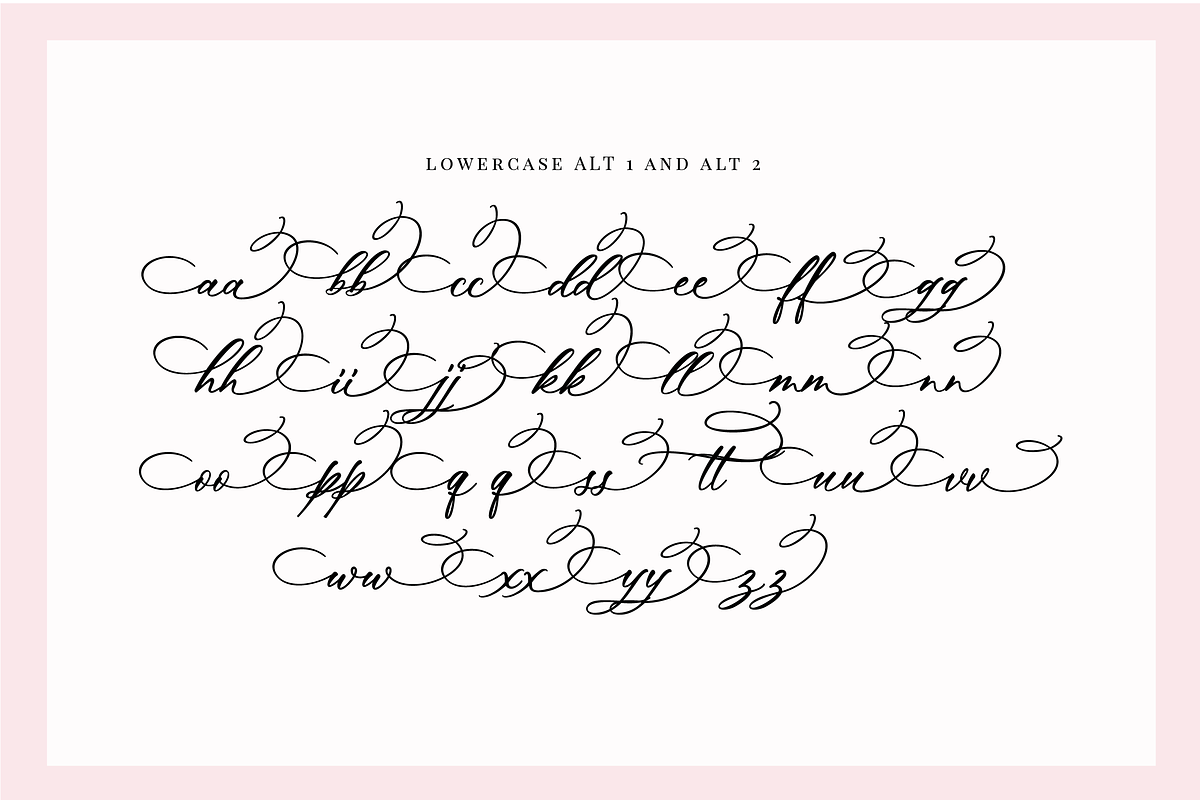 LOWERCASE ALT 1 AND ALT 2
aa bb cc dd ee ff gg
hh ii jj kk ll mm nn
oo pp q q ss tt uu vv
ww xx yy zz